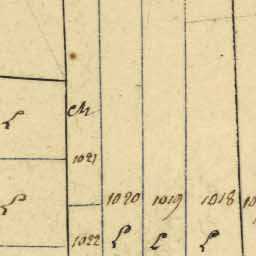 M
L
1021
1020 1019 1018 10
L
1022 L L L